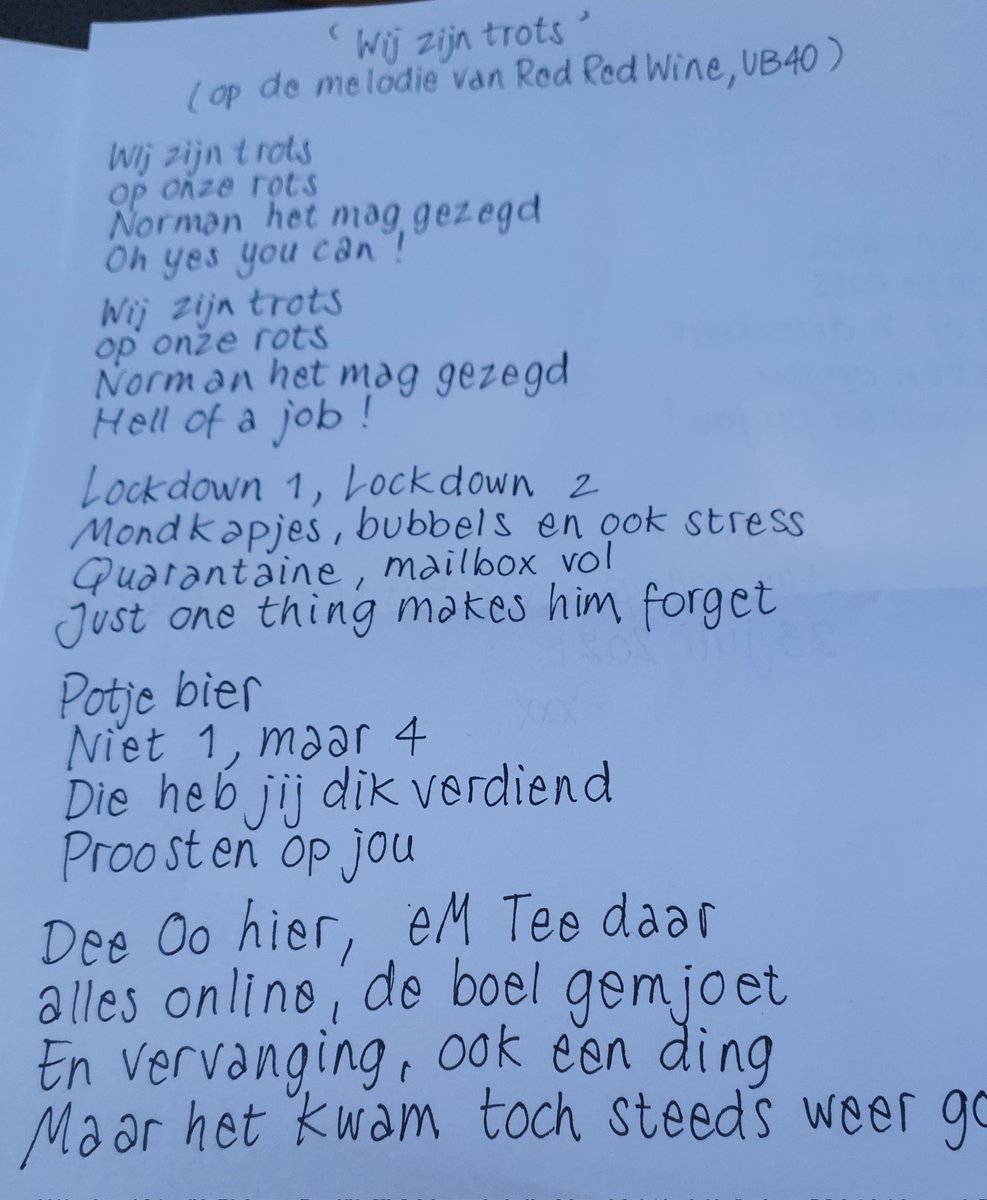 'Wij zijn trots'
(op de melodie van Red Red Wine, UB40)
Wij zijn trots
op onze rots
Norman het mag gezegd
Oh yes you can!
Wij zijn trots
op onze rots
Norman het mag gezegd
Hell of a job!
Lockdown 1, Lockdown 2
Mondkapjes, bubbels en ook stress
Quarantaine, mailbox vol
Just one thing makes him forget
Potje bier
Niet 1, maar 4
Die heb jij dik verdiend
Proosten op jou
Dee Oo hier, eM Tee daar
alles online, de boel gemjoet
En vervanging, ook een ding
Maar het kwam toch steeds weer